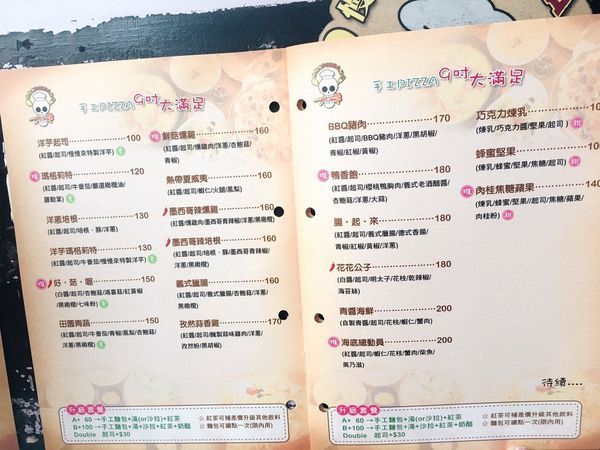 手工PIZZA9吋大滿足
洋芋起司 100
(紅醬/起司/慢慢來特製洋芋)
推 瑪格莉特 120
(紅醬/起司/牛番茄/嚴選橄欖油/
羅勒葉)
洋蔥培根 130
(紅醬/起司/培根.豚/洋蔥)
洋芋瑪格莉特 130
(紅醬/起司/牛番茄/慢慢來特製洋芋)
推 好.菇.喔 150
(白醬/起司/杏鮑菇/鴻喜菇/紅黃椒
/黑橄欖/七味粉)
田園青蔬 150
(紅醬/起司/牛番茄/青椒/鳳梨/杏鮑菇/
洋蔥/黑橄欖)
推 蘑菇燻雞 160
(紅醬/起司/燻雞肉/洋蔥/杏鮑菇/
青椒)
熱帶夏威夷 160
(紅醬/起司/蝦仁/火腿/鳳梨)
墨西哥辣燻雞 160
(紅醬/燻雞肉/墨西哥青辣椒/洋蔥/黑橄欖)
墨西哥辣培根 160
(紅醬/起司/培根.豚/墨西哥青辣椒/
洋蔥/黑橄欖)
義式臘腸 160
(紅醬/起司/義式臘腸/杏鮑菇/洋蔥
/黑橄欖)
孜然蒜香雞 170
(紅醬/起司/醃製蒜味雞肉/洋蔥/
孜然粉/黑胡椒)
升級套餐
A+ 60→手工麵包+湯(or沙拉)+紅茶
B+100→手工麵包+湯+沙拉+紅茶+奶酪
Double 起司+$30
☆ 紅茶可補差價升級其他飲料
☆ 麵包可續點一次(限內用)
手工PIZZA9吋大滿足
BBQ豬肉 170
(紅醬/起司/BBQ豬肉/洋蔥/黑胡椒/
青椒/紅椒/黃椒)
推 鴨香飽 180
(紅醬/起司/櫻桃鴨胸肉/義式老酒醋醬/
杏鮑菇/洋蔥/大蒜)
腸.起.來 180
(紅醬/起司/義式臘腸/德式香腸/
青椒/紅椒/黃椒/洋蔥)
花花公子 180
(白醬/起司/明太子/花枝/乾辣椒/
海苔絲)
青醬海鮮 200
(自製青醬/起司/花枝/蝦仁/蟹肉)
推 海底總動員 200
(紅醬/起司/蝦仁/花枝/蟹肉/柴魚/
美乃滋)
巧克力煉乳 140
(煉乳/巧克力醬/堅果/起司) 甜
蜂蜜堅果 140
(煉乳/蜂蜜/堅果/焦糖/起司) 甜
推 肉桂焦糖蘋果 140
(煉乳/蜂蜜/堅果//起司/焦糖/蘋果/
肉桂粉) 甜
待續....
升級套餐
A+ 60→手工麵包+湯(or沙拉)+紅茶
B+100→手工麵包+湯+沙拉+紅茶+奶酪
Double 起司+$30
☆ 紅茶可補差價升級其他飲料
☆ 麵包可續點一次(限內用)